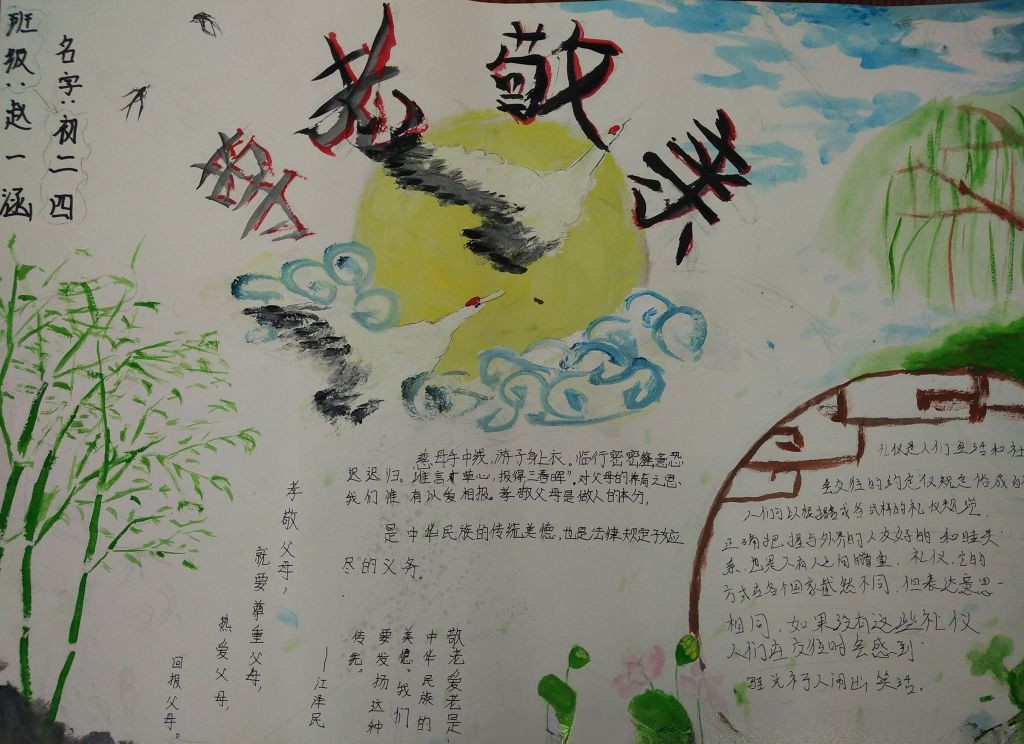 班级：赵一涵
名字：初二四
孝老敬亲
慈母手中线，游子身上衣。临行密密缝，意恐
迟迟归。谁言寸草心，报得三春晖"。对父母的养育之恩、
我们准有以爱相报。孝敬父母是做人的本分，
是中华民族的传统美德，也是法律规定子应
尽的义务。
孝敬父母，
就要尊重父母，
热爱父母，
回报父母。
敬老爱老是
中华民族的
美德、我们
要发扬这种
传统。
——江泽民
礼仪是人们生活和社
会交往的约定仪规定俗成
人们可以根据各式样的礼仪规范，
正确把握与外界的人友好的和睦关
系，也是人有人之间尊重。礼仪
方式在各个国家截然不同，但表达意思
相同，如果没有这些礼仪
人们在交往时会感到
闹出笑话。